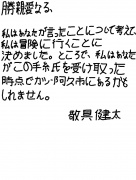 勝親愛なる、
私はあなたが言ったことについて考え、
私は冒険に行くことに
決めました。ところで、私はあなた
がこの手紙を受け取った
時点でガンガ스ホにあるかも
しれません。
敬具健太